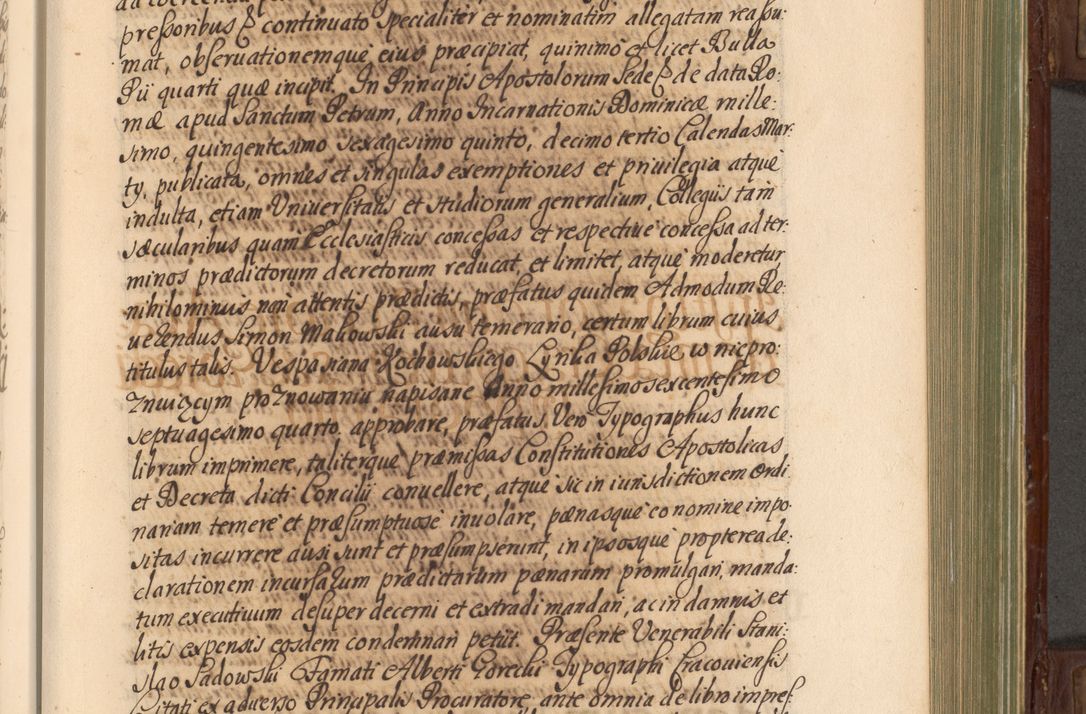 pressoribus & continuato specialiter et nominatim allegatam reassu:
mat, obseruationemque eius præcipiat, quinimo et licet Bulla
Pii quarti quæ incipit. In Principis Apostolorum Sede & de data Ro:
mæ apud Sanctum Petrum, Anno Incarnationis Dominicæ mille:
simo, quingentesimo sexagesimo quinto, decimo tertio Calendas Mar:
ty, publicata, omnes et singulas exemptiones et priuilegia atque
indulta, etiam Vniuersitatis et studiorum generalium, Collegiis tam
sæcularibus quam Ecclesiasticis concessas et respectiue concessa ad ter:
minos prædictorum decretorum reducat, et limitet, atque moderetur,
nihilominus non attentis prædictis, præfatus quidem Admodum Re:
uerendus Simon Makowski ausu temerario, certum librum cuius
titulus talis. Vespasiana Kochowskiego Lyrika Polskie w niepro:
znuiącym proznowaniu napisane Anno millesimo sexcentesimo
septuagesimo quarto. approbare, præfatus Vero Typographus hunc
librum imprimere, taliterque præmissas Constitutiones Apostolicas
et Decreta dicti Concilii conuellere, atque sic in iurisdictionem Ordi
nariam temere et præsumptuose inuolare, pænasque eo nomine impo
sitas incurrere ausi sunt et præsumpserunt, in ipsosque propterea de:
clarationem incursarum prædictarum pænarum promulgari, manda:
tum executiuum desuper decerni et extradi mandari, ac in damnis et
litis expensis eosdem condemnari petiit. Præsente Venerabili Stani:
slao Sadowski Famati Alberti Gorecki Typographi Cracouiensis
Citati ex aduerso Principalis Procuratore, ante omnia de libro impres